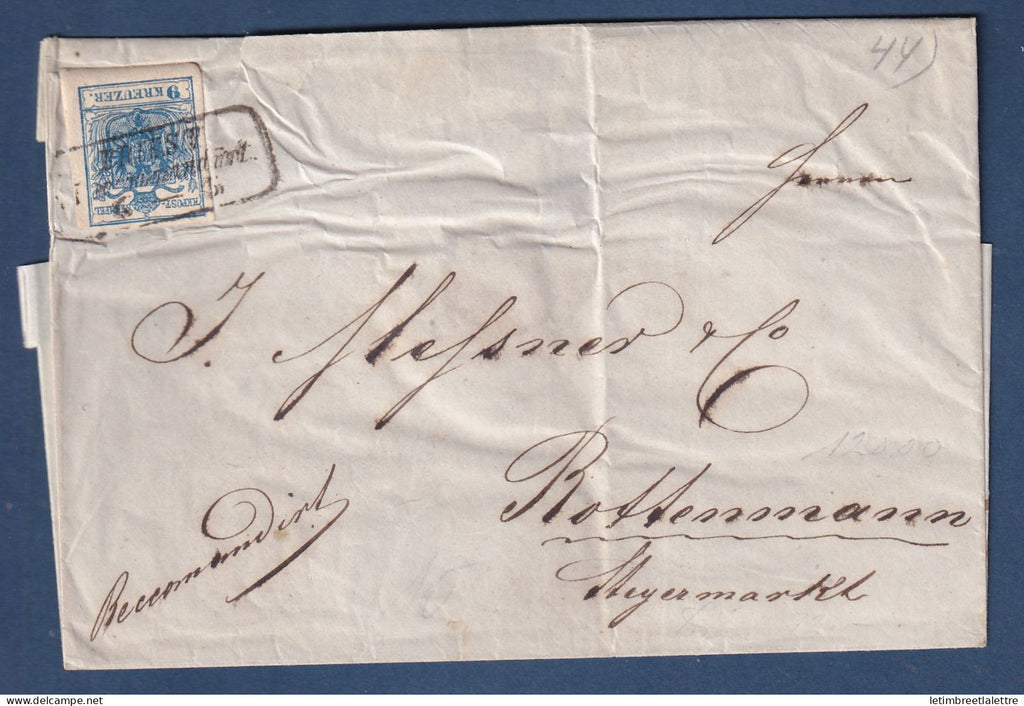 44)
9 KREUZER.
KKPOST-STEMPEL
Herren
J. Messner & Co
12000
Rottenmann
Steyermarkt
Reccomandirt
delcampe.net
letimbreetlalettre